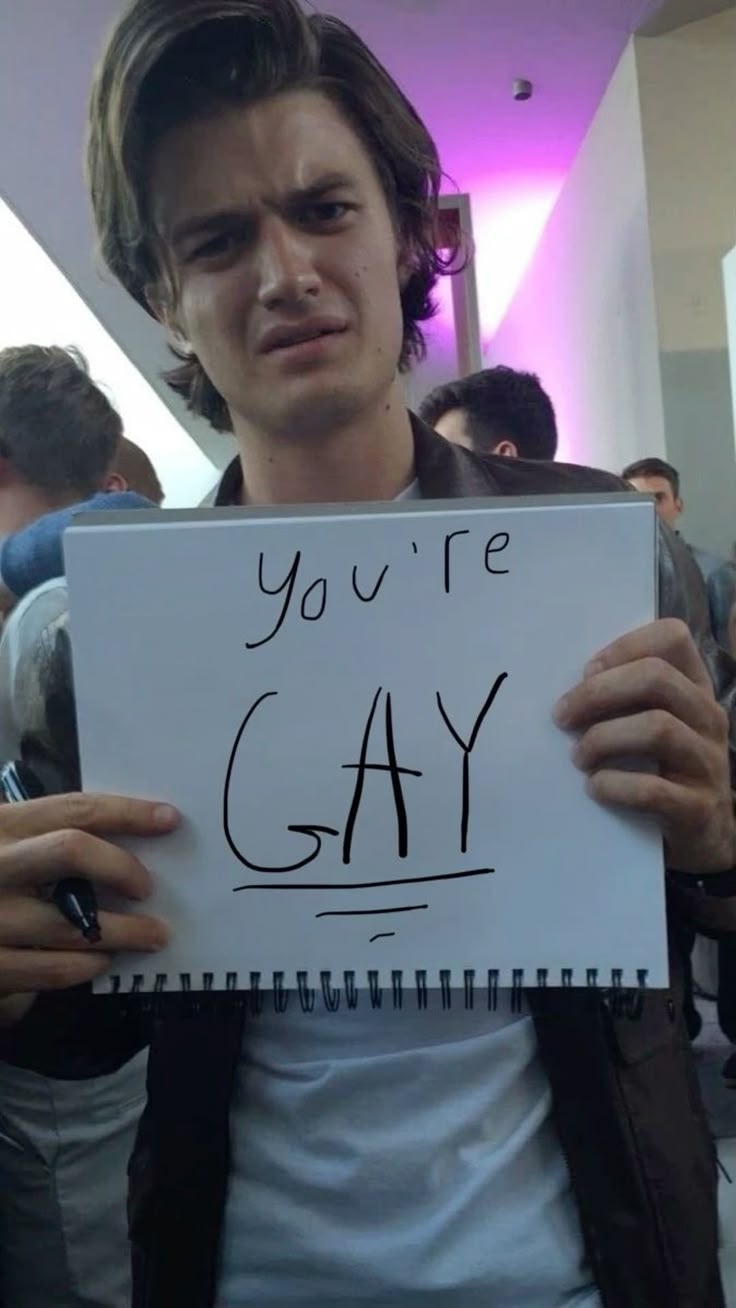 You're
GAY